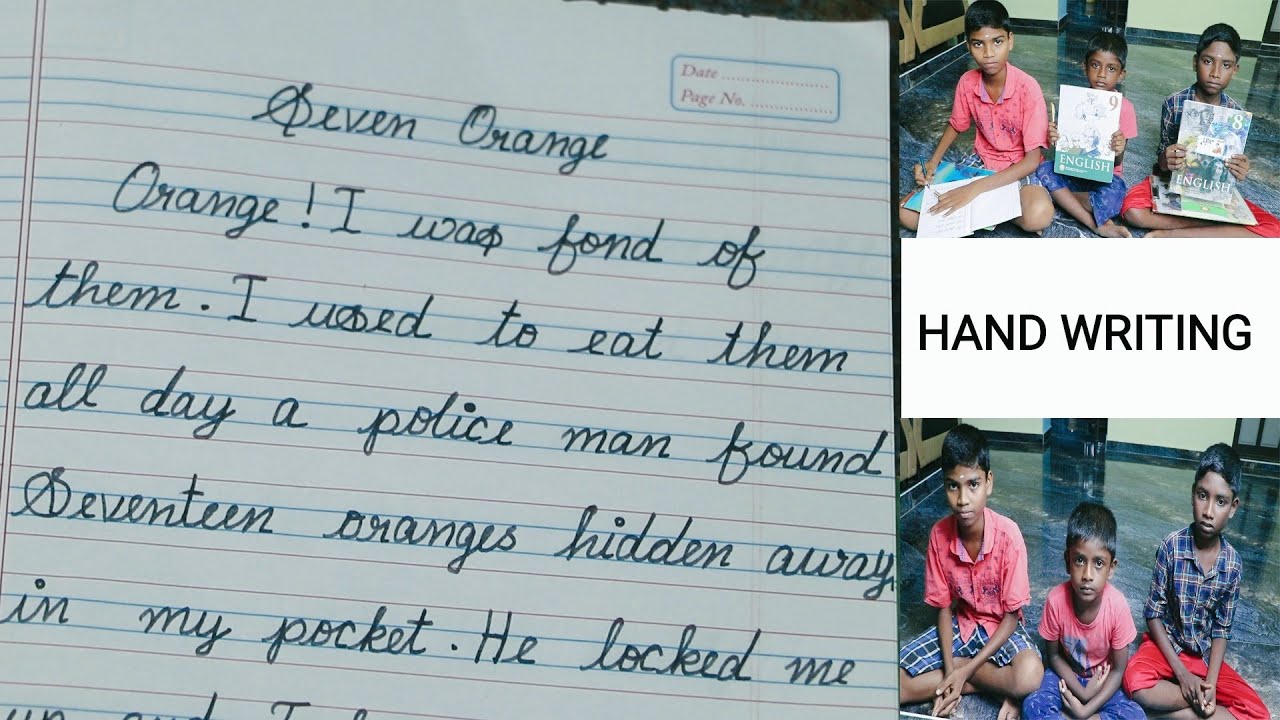 Date
Page No.
Seven Orange
Orange! I was fond of
them. I used to eat them
all day a police man found
Seventeen oranges hidden away
in my pocket. He locked me
up and I
9
ENGLISH
8
ENGLISH
HAND WRITING